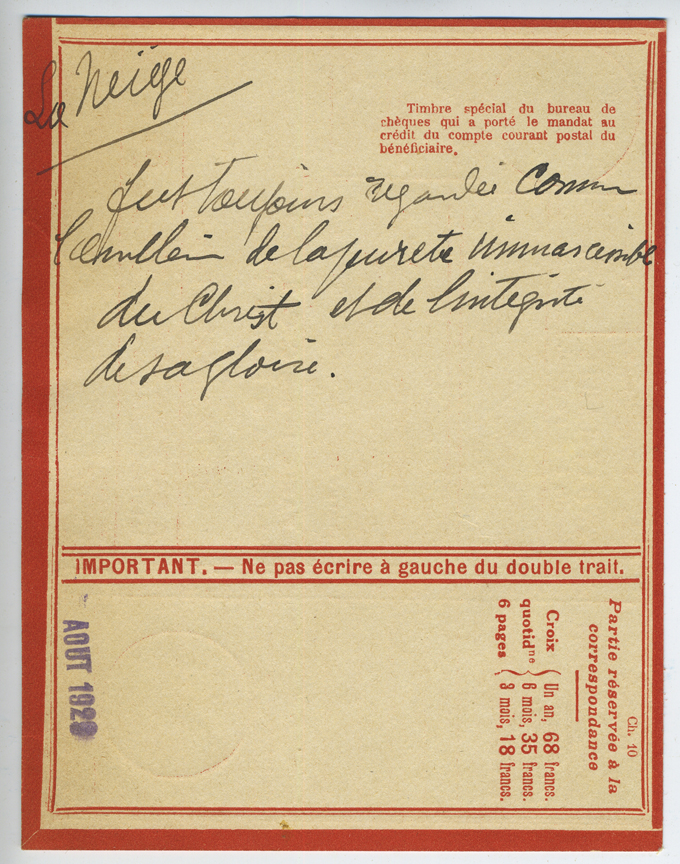 La Neige
Timbre spécial du bureau de
chèques qui a porté le mandat au
crédit du compte courant postal du
bénéficiaire.
fut toujours regardée comme
l'emblème de la pureté immarcescible
du Christ et de l'intégrité
de sa gloire.
IMPORTANT. — Ne pas écrire à gauche du double trait.
AOUT 1929
Ch. 10
Partie réservée à la
correspondance
Croix
quotidne
6 pages
Un an, 68 francs.
6 mois, 35 francs.
3 mois, 18 francs.